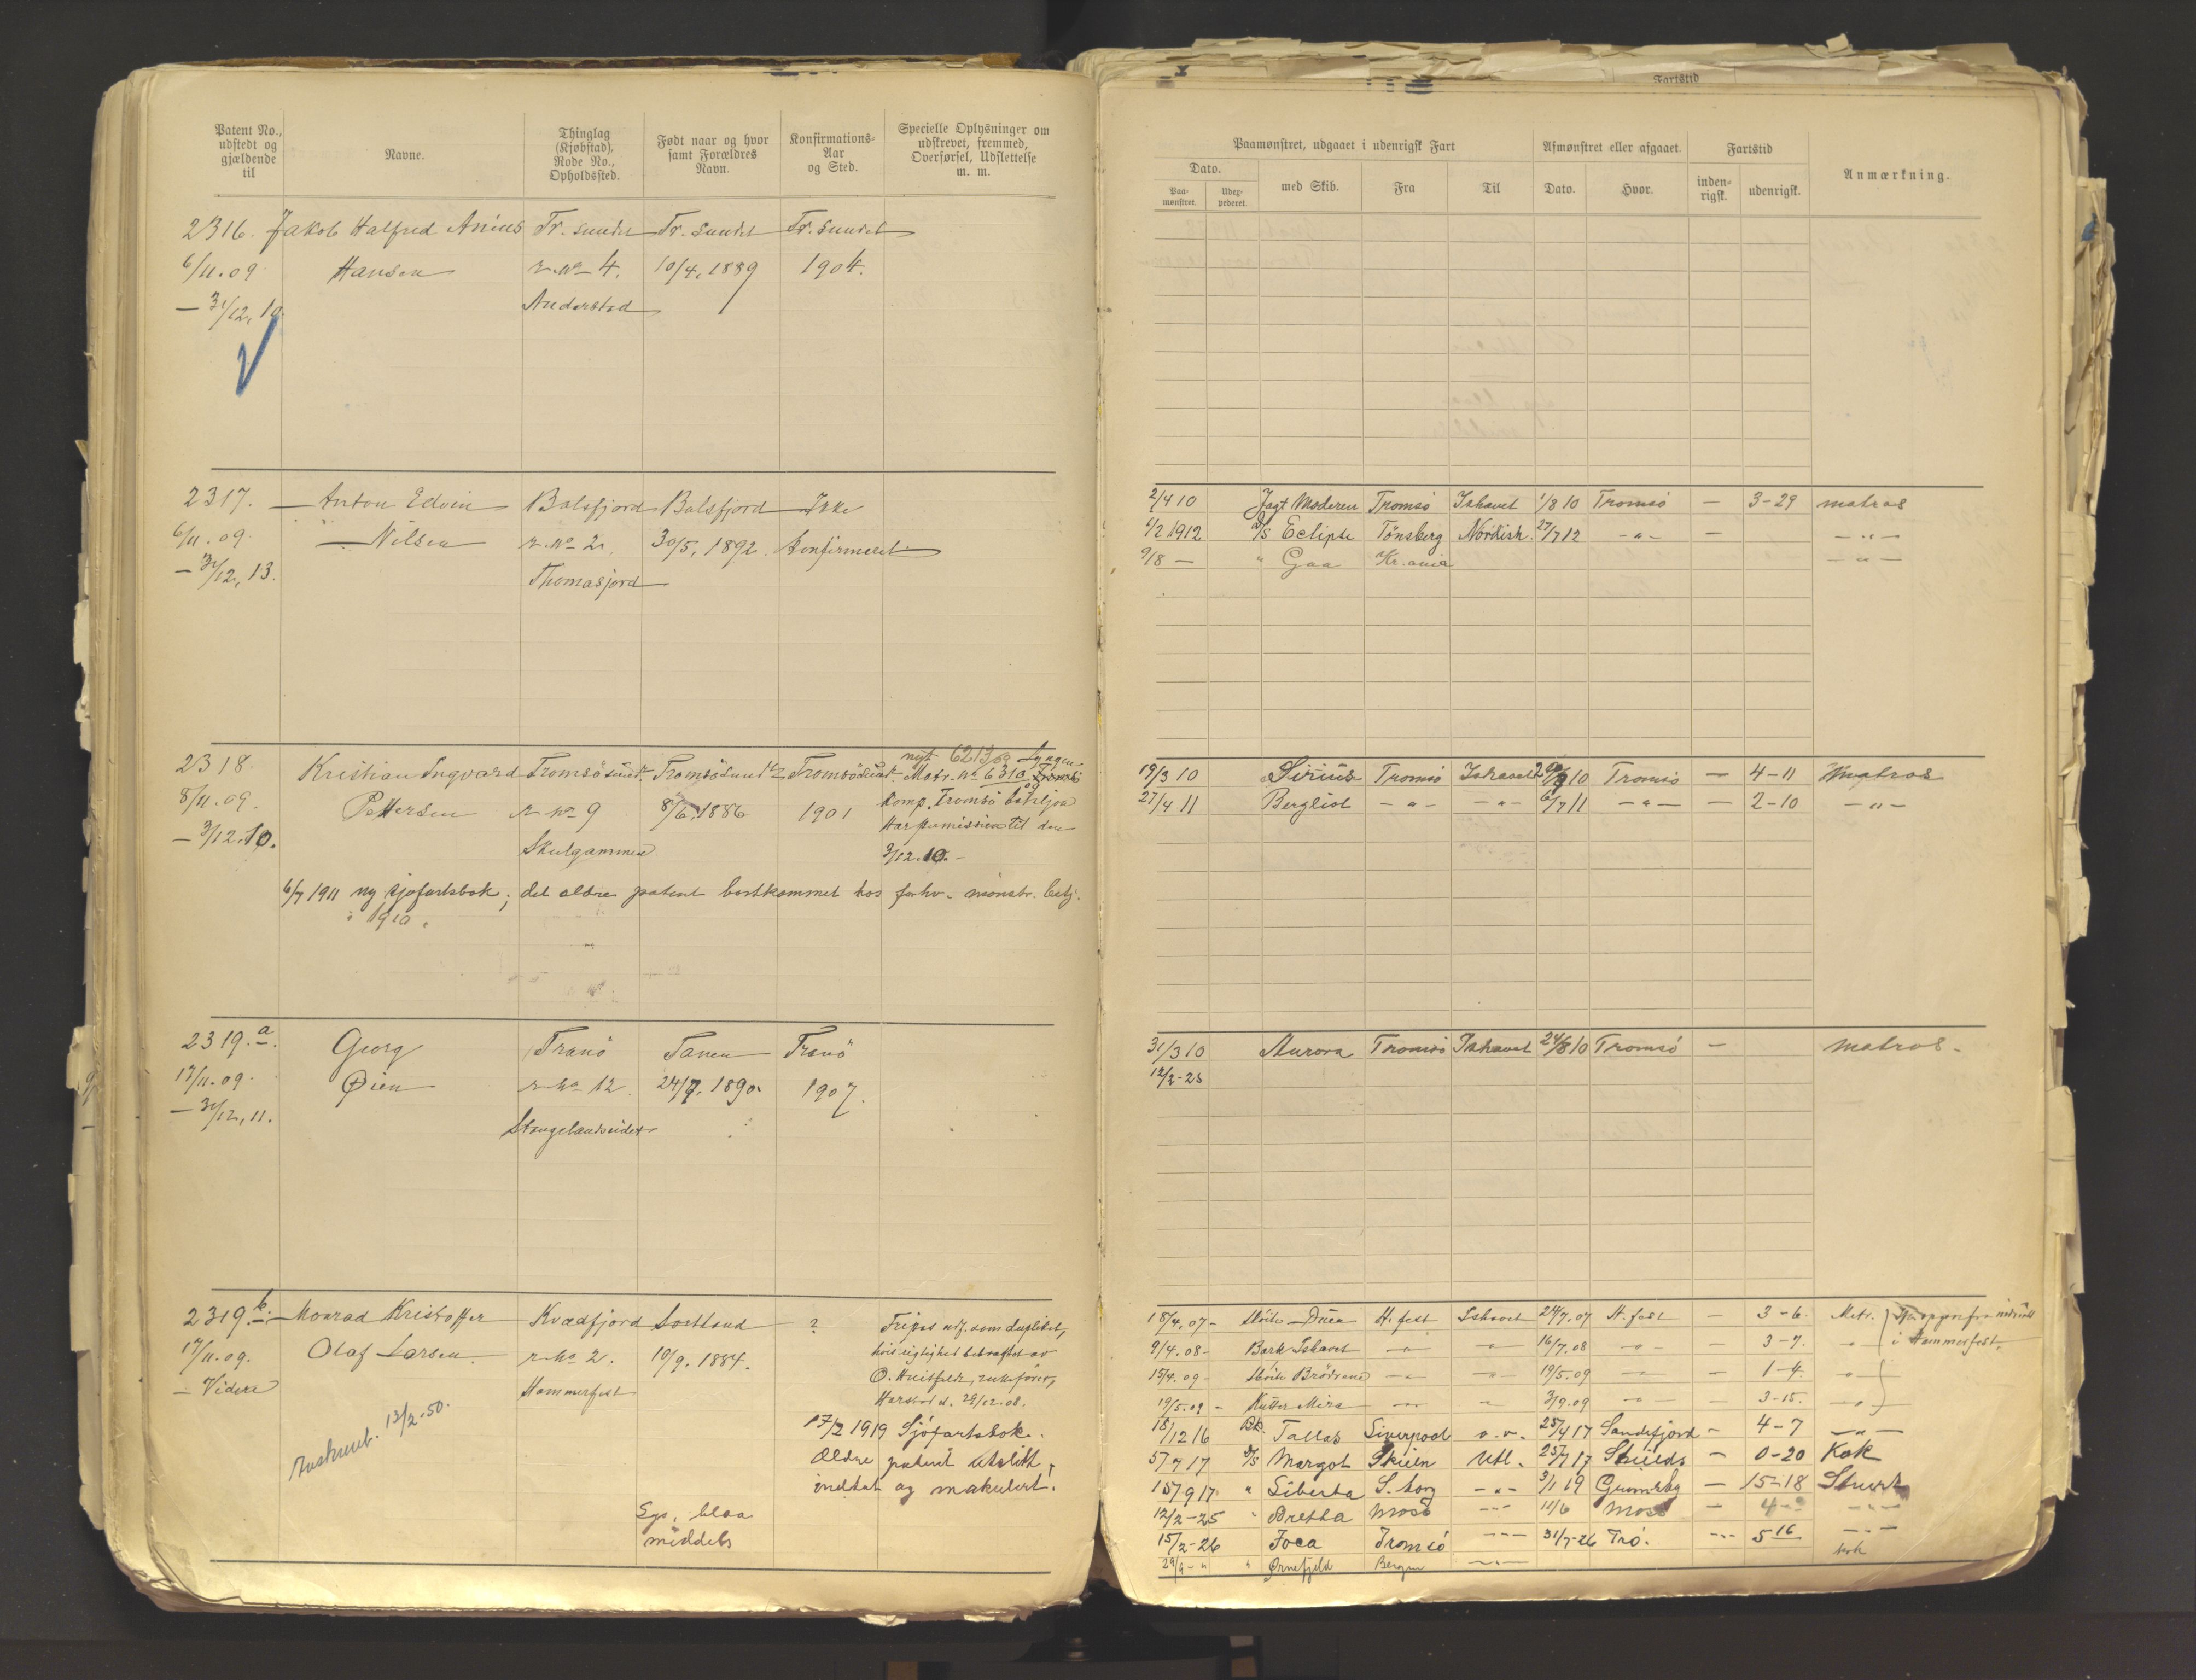 Patent No., udstedt og gjældende til
Navne.
Thinglag (Kjøbstad), Rode No., Opholdssted.
Født naar og hvor samt Forældres Navn.
Konfirmations-Aar og Sted.
Specielle Oplysninger om udskrevet, fremmed, Overførsel, Udslettelse m. m.
2316. Jakob Halfred Anius Tr. sundet Tr. sundet Tr. sundet
6/11.09 Hansen r. No 4. 10/4, 1889 1904.
— 31/12, 10. Anderstad
2317. Anton Edvin Balsfjord Balsfjord Ikke
6/11.09. Nilsen r. No 2. 30/5, 1892. Konfirmeret
— 31/12, 13. Thomasjord
nyt 62 13 Lyngen
2318. Kristian Ingvard Tromsösundt Tromsösundt Tromsösundt Matr. No 631
8/11.09. Pettersen r No 9 8/6 1886 1901 Komp. Tromsö
— 31/12.10. Skulgammen Har permission til den
31/12.10.—
6/7 1911 ny sjøfartsbok; det ældre patent bortkommet hos forhv. mønstr. betj.
i 1910.
2319.a. Georg Tranö Tanen Tranö
17/11.09. Øien r. No 12. 24/7, 1890. 1907.
— 31/12, 11. Stangelandseidet
2319.b. Monrad Kristoffer Kvædfjord Sortland ? Fripas udf. som duplikat,
17/11.09. Olaf Larsen. r. No 2. 10/9, 1884. hvis rigtighed bekræftet av
— Videre Hammerfest O. Huitfeldt, rulleförer,
Harstad d. 29/12.08.
Avskunb. 13/2.50.
17/2 1919 Sjöfartsbok.
Ældre patent utslitt,
indtat og makulert!
Eyi. blaa
middels
Fartstid
Paamønstret, udgaaet i udenrigsk Fart
Afmønstret eller afgaaet.
Fartstid
Anmærkning.
Dato.
Paa-mønstret.
Uder-pederet.
med Skib.
Fra
Til
Dato.
Hvor.
inden-rigsk.
udenrigsk.
2/4 10 Jagt Moderen Tromsö Ishavet 1/8 10 Tromsö — 3-29 matros
6/2 1912 D/S Eclipse Tönsberg Nordish. 27/7 12 -"- — -"-
9/8 — " Gaa Kr.ania -"-
19/3 10 Sirius Tromsö Ishavet 20/9 10 Tromsö — 4-11 Matros
27/4 11 Bergliot -"- -"- 6/7 11 -"- — 2-10 -"-
31/3 10 Aurora Tromsö Ishavet 24/8 10 Tromsö — matros-
12/2-25
18/4.07- Sköite Duen H.fest Ishavet 24/7.07 H.fest — 3-6. Matr.
9/4.08- Bark Ishavet -"- -"- 16/7.08 -"- — 3-7. -"- i Hammerfest.
15/4.09- Sköite Brödrene -"- -"- 19/5.09 -"- — 1-4. -"-
19/5.09 - Kutter Mira -"- " 3/9.09 -"- — 3-15. -"-
18/12 16 Bk. Tallas Liverpool o.v. 25/4 17 Sandefjord - 4-7 -"-
5/7 17 D/S Margot Skien Utl. 25/7 17 Shields - 0-20 Kok
15/9 17 " Liberta S. borg -"- 3/1 19 Grimsby — 15-18 Stuert
12/2-25 " Bretta Moss -"- 11/6 Moss - -"-
15/2-26 Joca Tromsö -"- 31/7-26 Trö. -"- 5 16 -"-
29/9-" " Ørnefjeld Bergen -"- kok